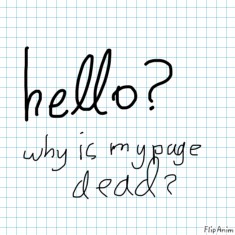 hello?
why is my page
dead?
FlipAnim